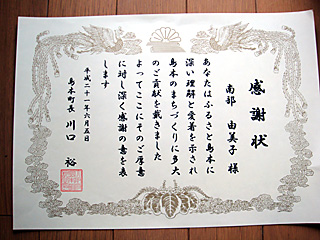 感謝状
南部 由美子 様
あなたはふるさと島本に
深い理解と愛着を示され
島本のまちづくりに多大
のご貢献を戴きました
よってここにそのご厚意
に対し深く感謝の意を表
します
平成二十一年六月五日
島本町長 川口 裕